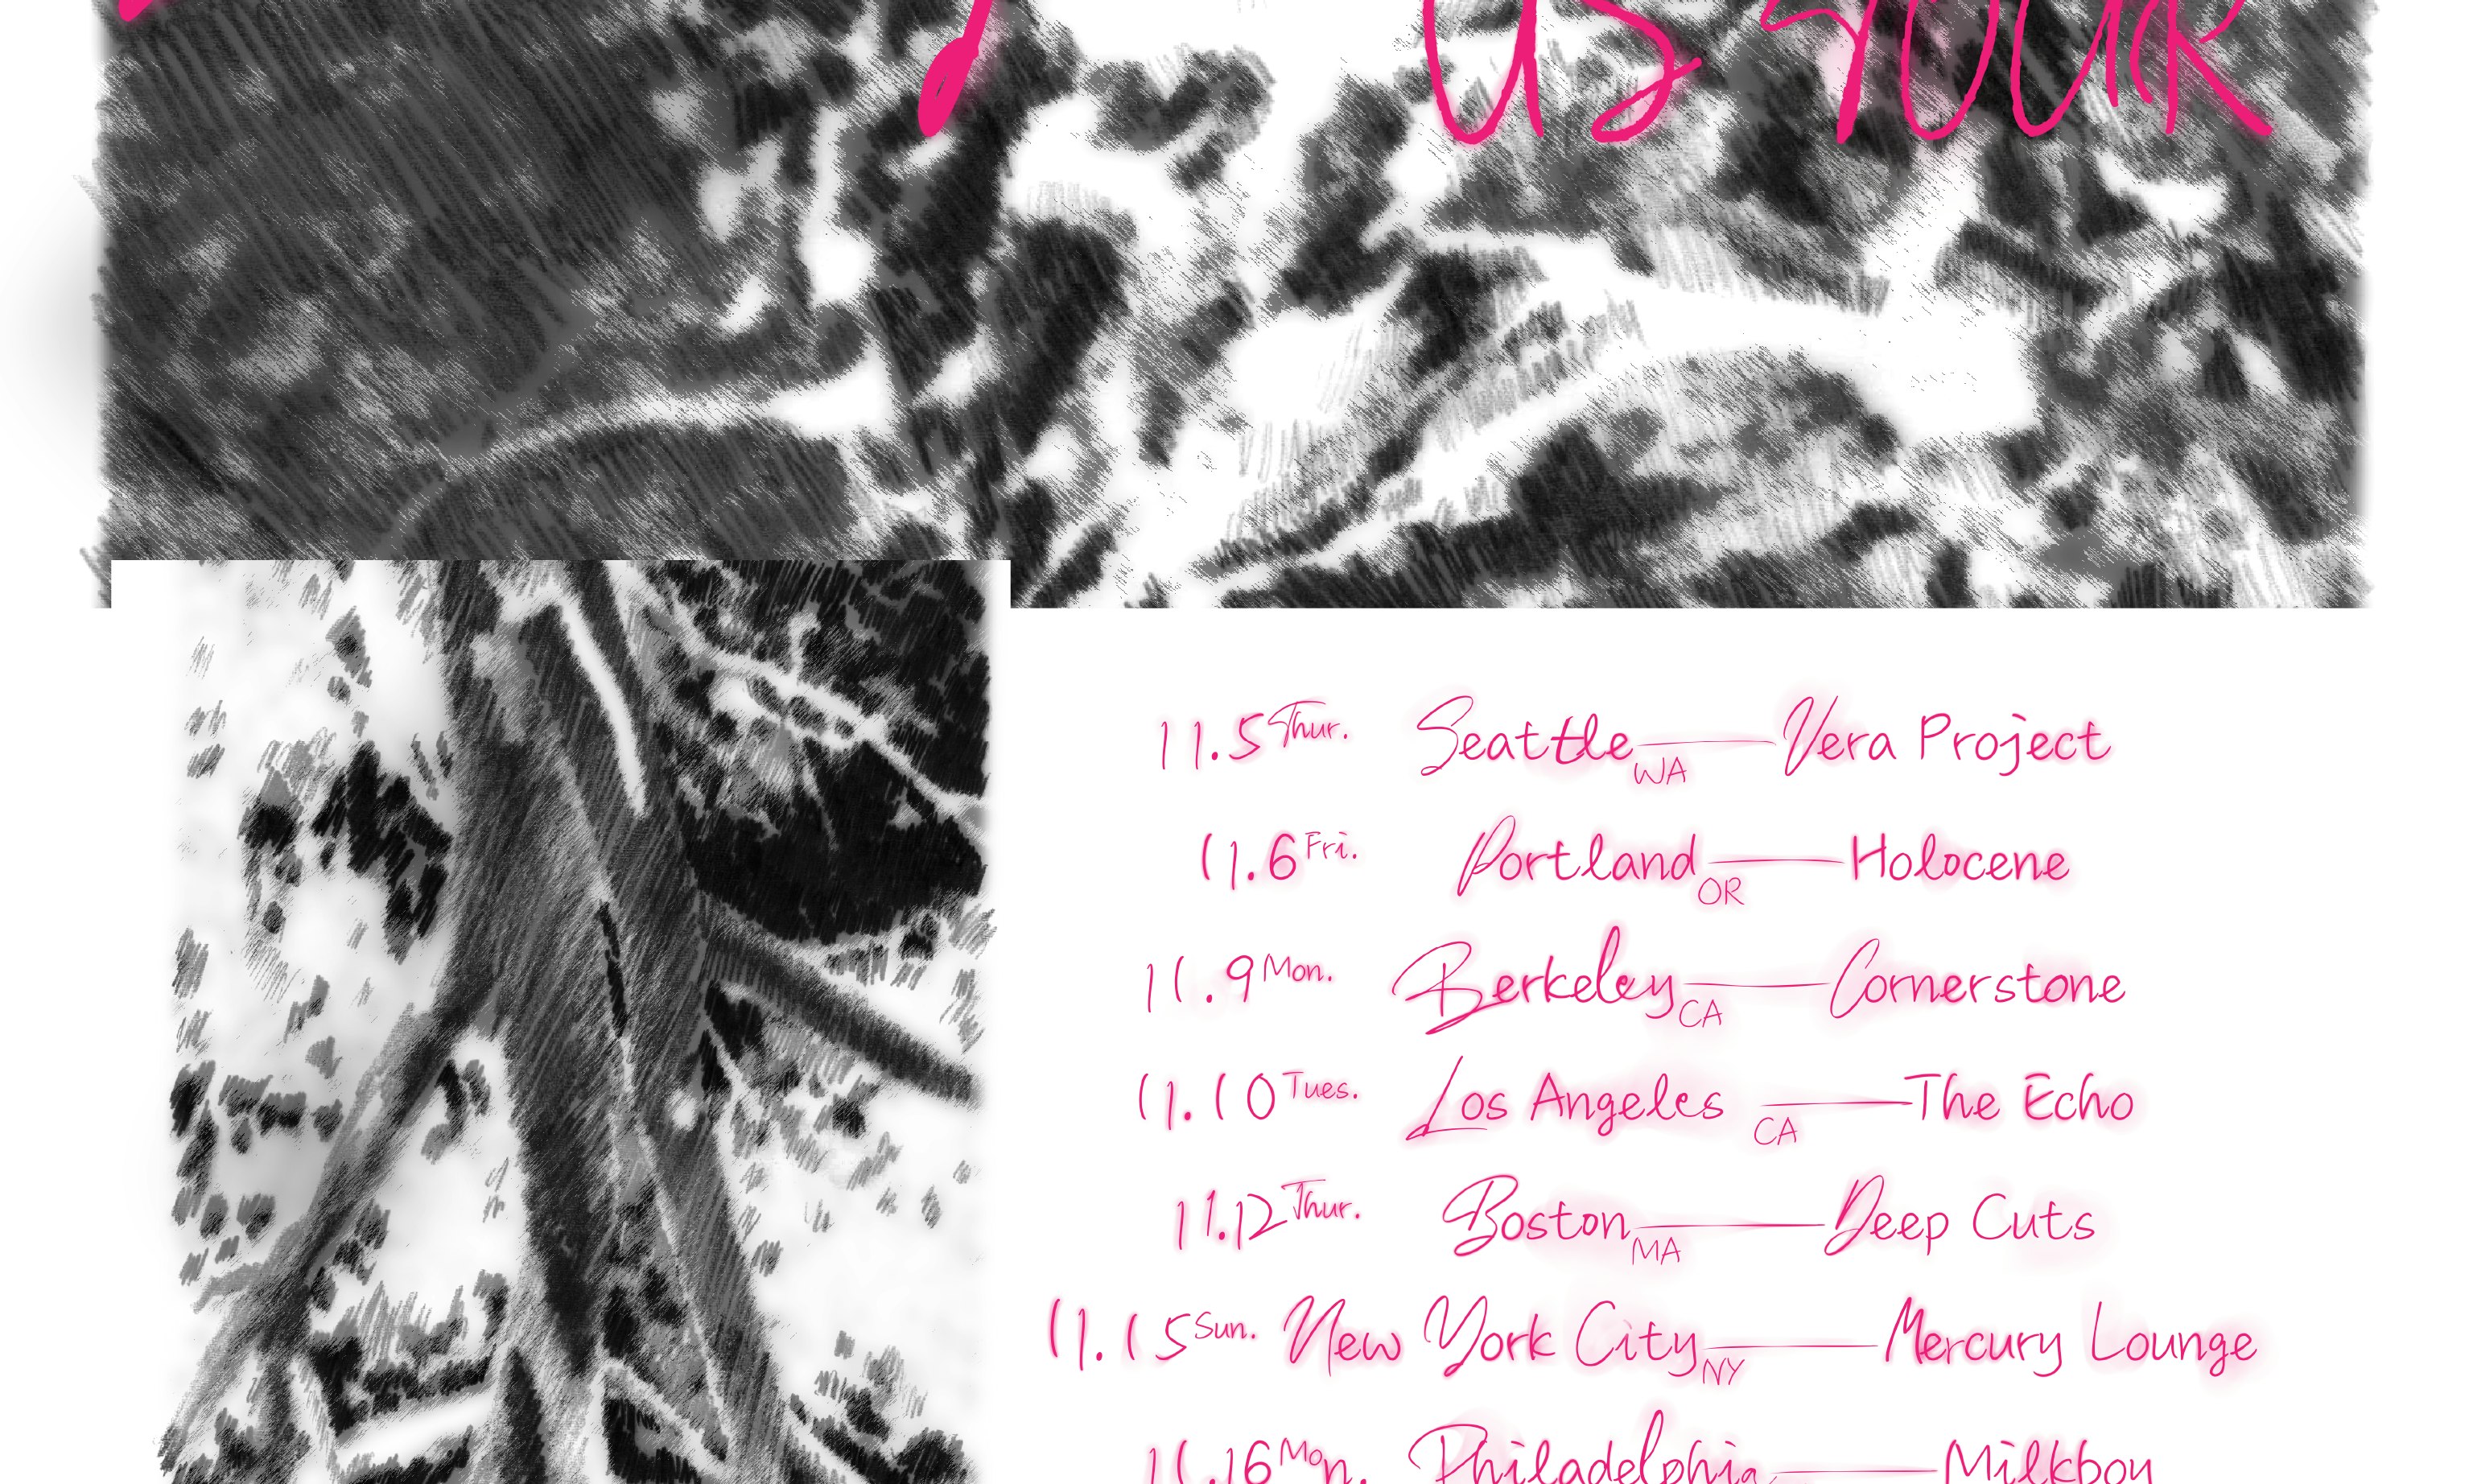 US YOUR
11.5 Thur. Seattle WA — Vera Project
11.6 Fri. Portland OR — Holocene
11.9 Mon. Berkeley CA — Cornerstone
11.10 Tues. Los Angeles CA — The Echo
11.12 Thur. Boston MA — Deep Cuts
11.15 Sun. New York City NY — Mercury Lounge
11.16 Mon. Philadelphia — Milkboy